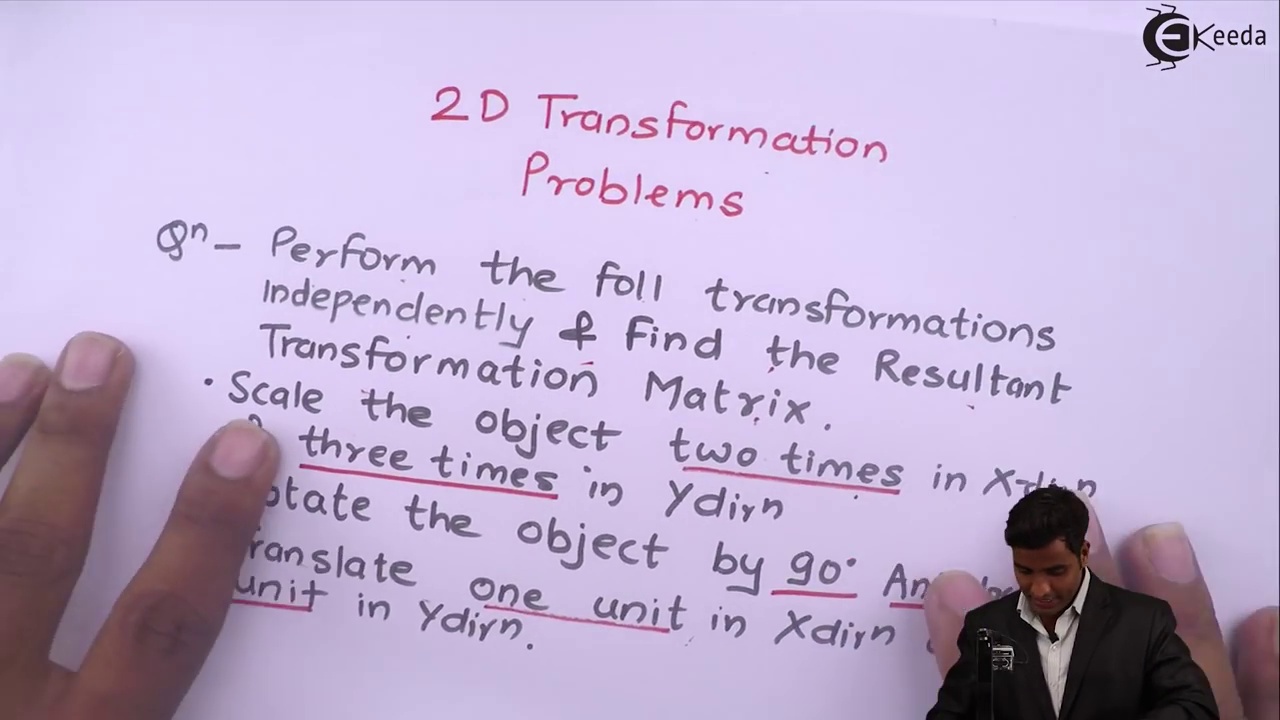 EKeeda
2D Transformation
Problems
Qn - Perform the foll transformations
Independently & Find the Resultant
Transformation Matrix.
• Scale the object two times in X-dirn
three times in Ydirn
otate the object by 90°
ranslate one unit in Xdirn
unit in Ydirn.